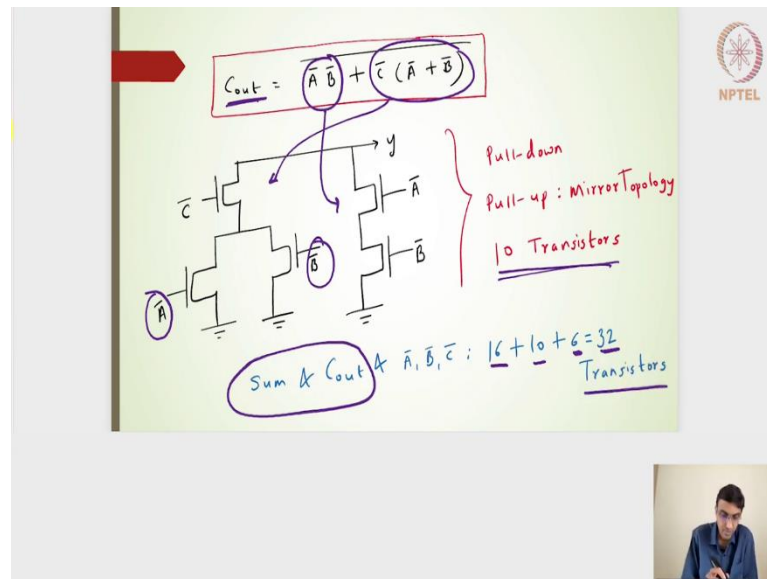 Cout = \overline{A̅ B̅ + C̅ (A̅ + B̅)}
NPTEL
y
C̅
A̅
B̅
B̅
A̅
Pull-down
Pull-up : Mirror Topology
10 Transistors
Sum & Cout & A̅, B̅, C̅ : 16 + 10 + 6 = 32
Transistors